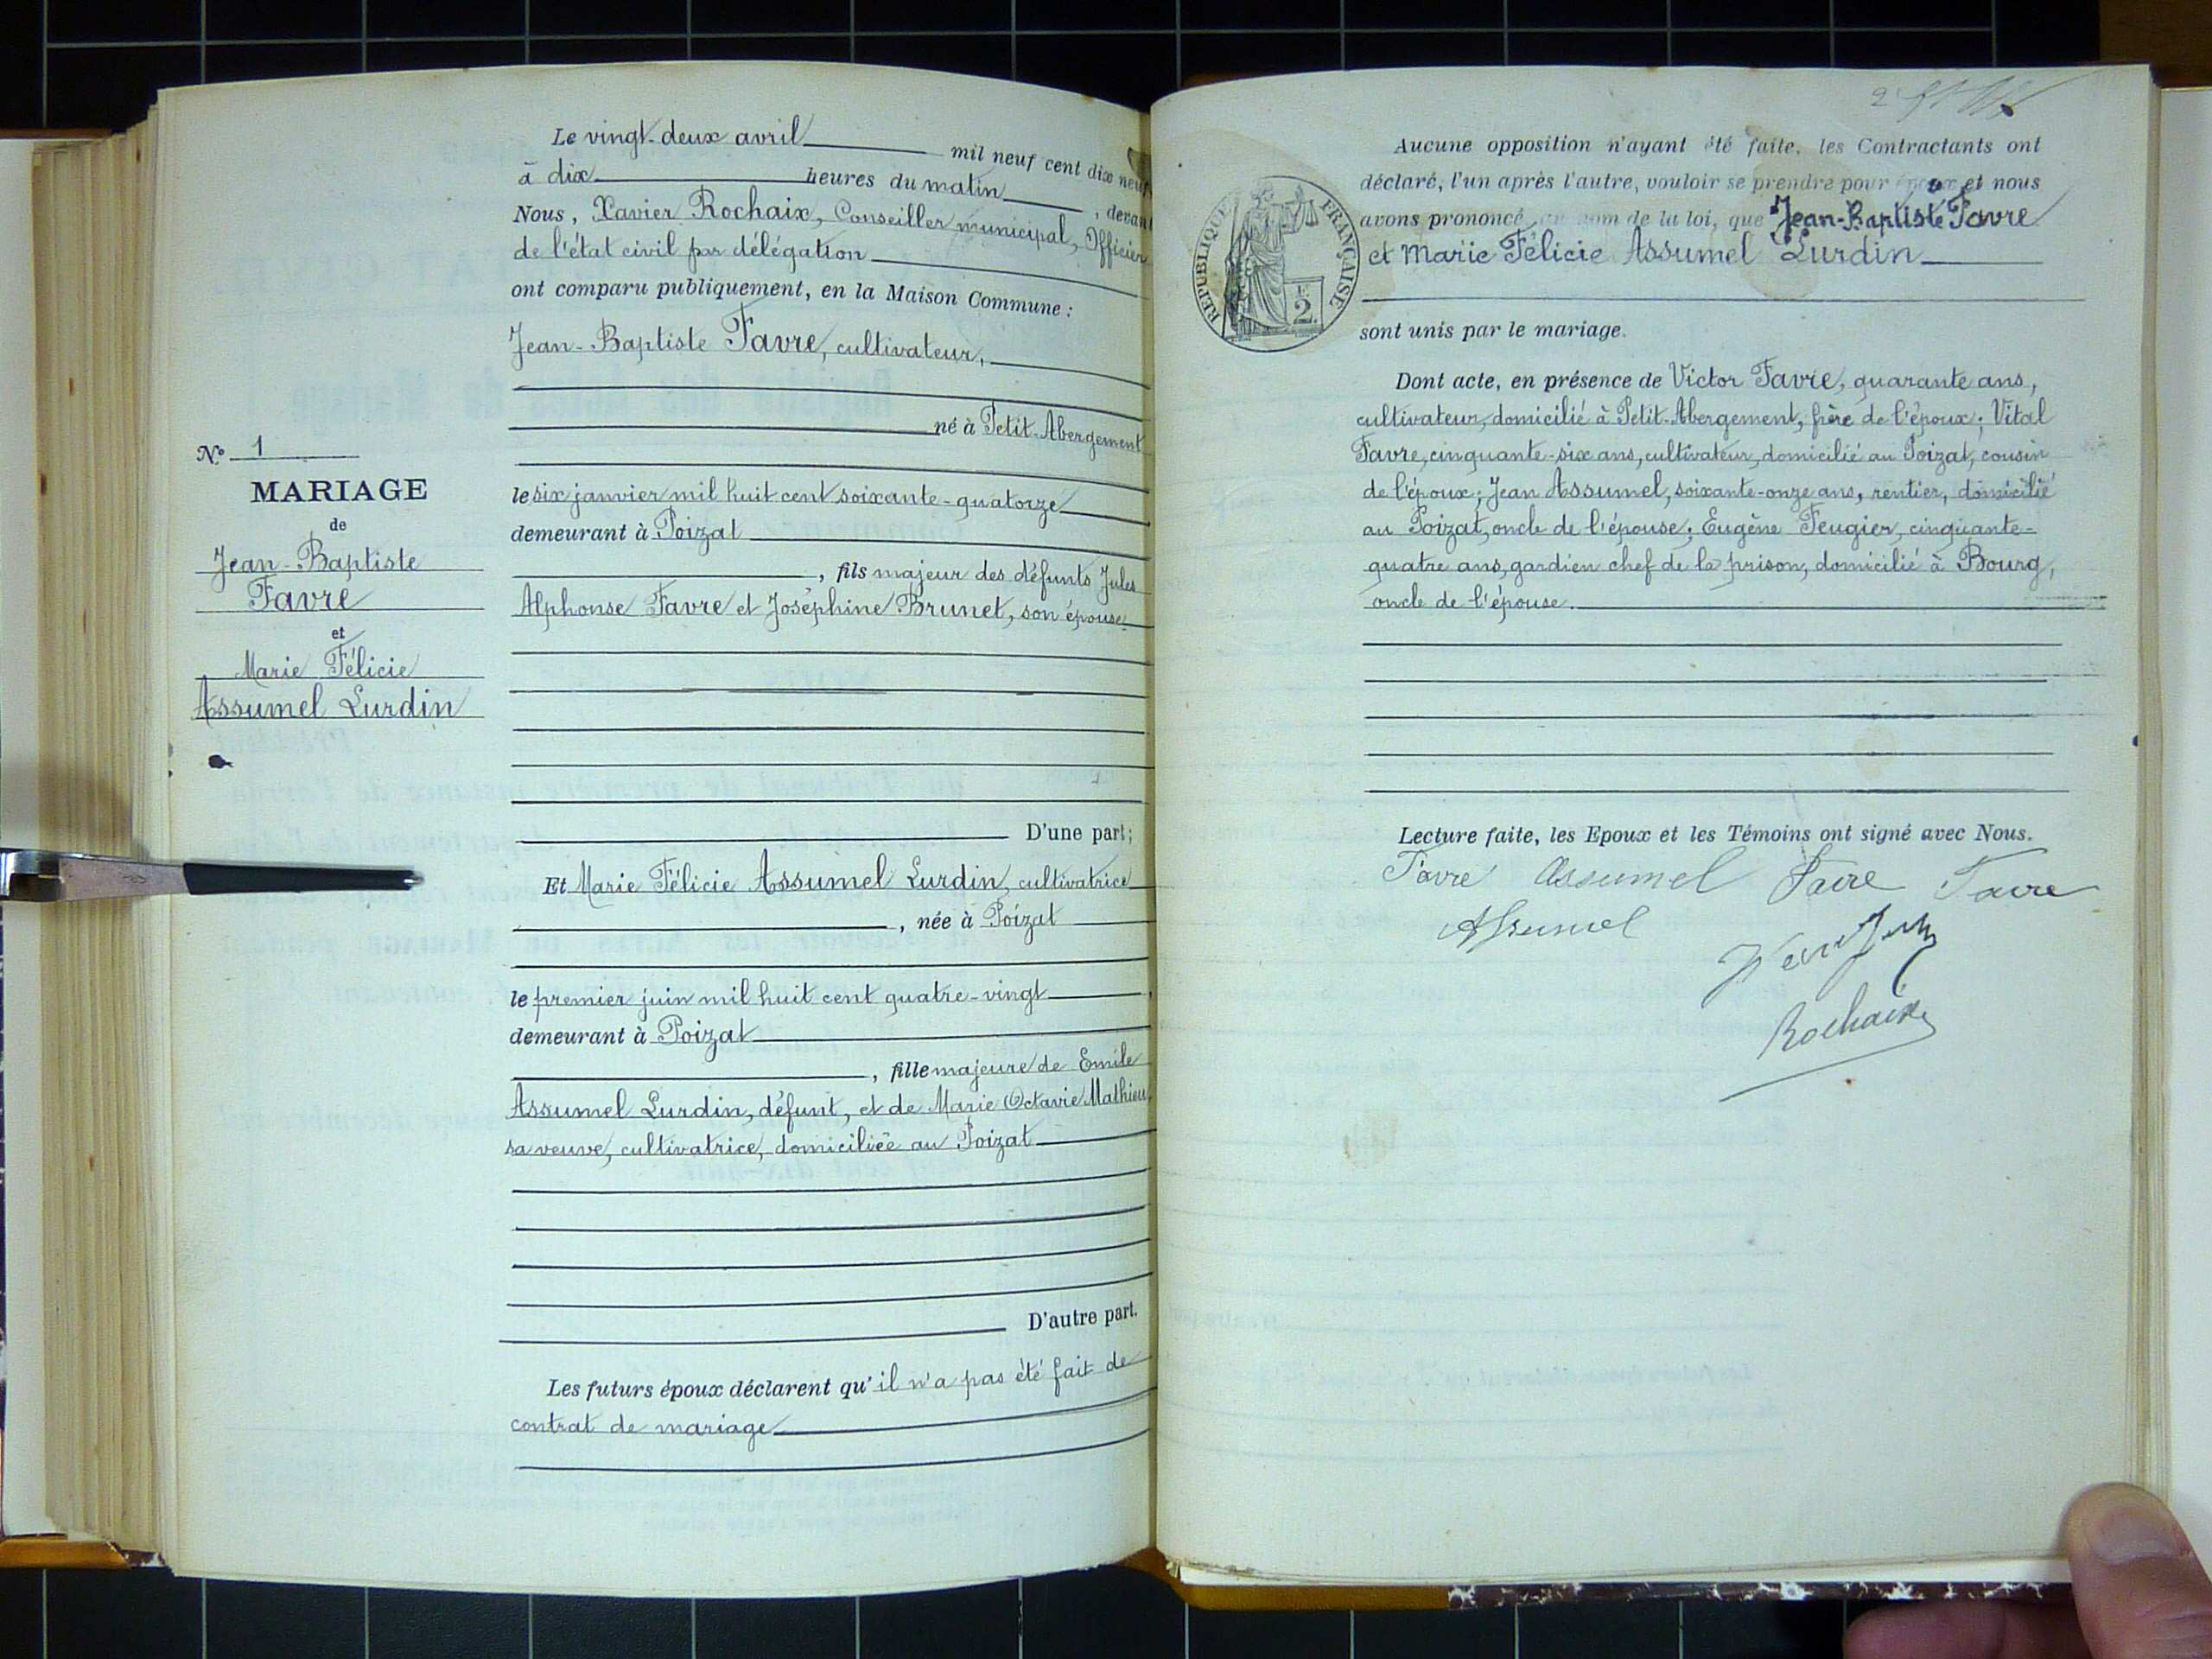 Le vingt-deux avril mil neuf cent dix neuf
à dix heures du matin, devant
Nous, Xavier Rochaix, Conseiller municipal, Officier
de l'état civil par délégation
ont comparu publiquement, en la Maison Commune :
Jean-Baptiste Favre, cultivateur,
né à Petit-Abergement
le six janvier mil huit cent soixante-quatorze
demeurant à Poizat
, fils majeur des défunts Jules
Alphonse Favre et Joséphine Brunet, son épouse
D'une part;
Et Marie Félicie Assumel Lurdin, cultivatrice
, née à Poizat
le premier juin mil huit cent quatre-vingt
demeurant à Poizat
, fille majeure de Emile
Assumel Lurdin, défunt, et de Marie Octavie Mathieu,
sa veuve, cultivatrice, domiciliée au Poizat
D'autre part.
Les futurs époux déclarent qu'il n'a pas été fait de
contrat de mariage
N° 1
MARIAGE
de
Jean-Baptiste
Favre
et
Marie Félicie
Assumel Lurdin
2
REPUBLIQUE FRANÇAISE
2
Aucune opposition n'ayant été faite, les Contractants ont
déclaré, l'un après l'autre, vouloir se prendre pour époux et nous
avons prononcé, au nom de la loi, que Jean-Baptiste Favre
et Marie Félicie Assumel Lurdin
sont unis par le mariage.
Dont acte, en présence de Victor Favre, quarante ans,
cultivateur, domicilié à Petit-Abergement, frère de l'époux; Vital
Favre, cinquante-six ans, cultivateur, domicilié au Poizat, cousin
de l'époux; Jean Assumel, soixante-onze ans, rentier, domicilié
au Poizat, oncle de l'épouse; Eugène Feugier, cinquante-
quatre ans, gardien chef de la prison, domicilié à Bourg,
oncle de l'épouse.
Lecture faite, les Epoux et les Témoins ont signé avec Nous.
Favre Assumel Favre Favre
Assumel
Rochaix